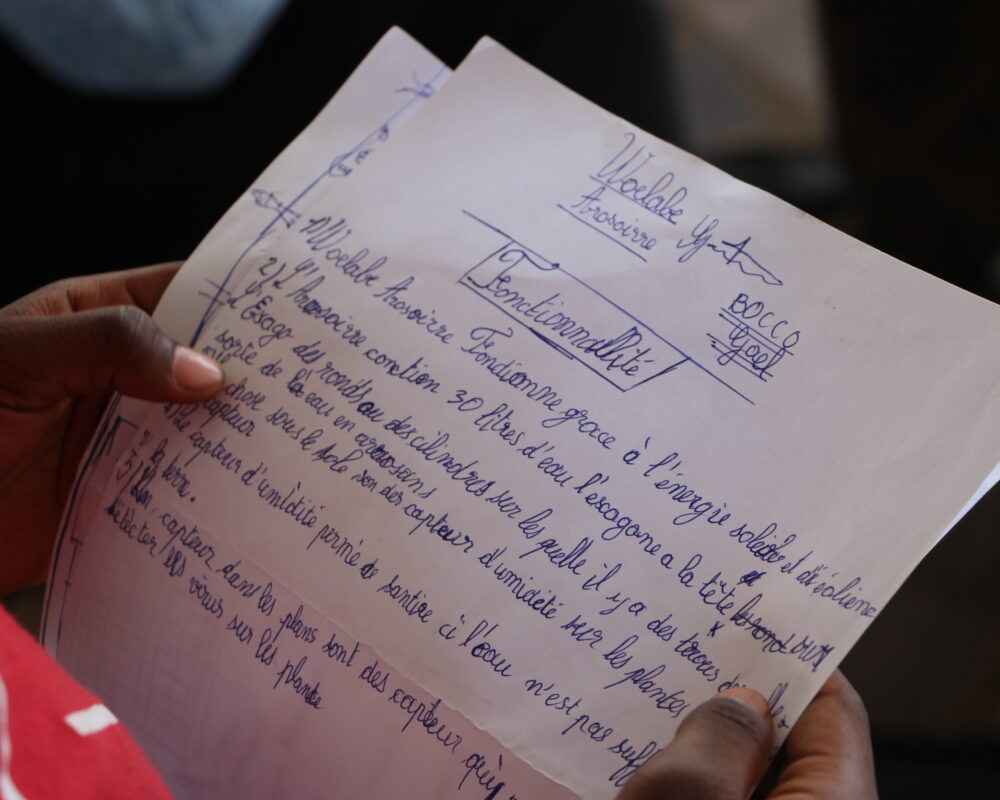 Woelabe
Arosoirre
BOCCO
Gael
Fonctionnallité
1) Woelabe Arosoirre Fondionne grace à l'énergie soliaire et d'éoliène
2) L'Arosoirre conction 30 litres d'eau l'escogone a la tête
Exago des ronds ou des cilindres sur les quelle il y a des trous
sorte de la eau en arrosans
chose sous le sole son des capteur d'umidété sur les plantes
capteur
Le capteur d'umidité permé de santire ci l'eau n'est pas suff
la terre.
5) capteur dans les plans sont des capteur qui
détècter les virus sur les plante